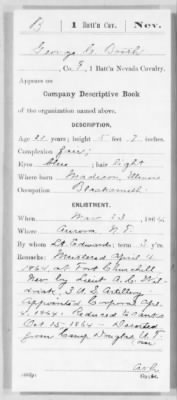 B | 1 Batt'n Cav. | Nev.
George C. Booth
, Co. , 1 Batt'n Nevada Cavalry.
Appears on
Company Descriptive Book
of the organization named above.
DESCRIPTION.
Age years; height 5 feet 7 inches.
Complexion fair
Eyes blue ; hair light
Where born Madison, Illinois
Occupation Blacksmith
ENLISTMENT.
When Mar 23 , 186 .
Where Aurora N.T.
By whom Lt. Edwards ; term 3 y'rs.
Remarks: Mustered April 4
1864, at Fort Churchill
Nev by Lieut A. C.
3 U S Artillery
Appointed Corporal Apr.
4, 1864. Reduced to ranks
Oct 15 1864 - Deserted
from Camp Douglas U.T.
Copyist.